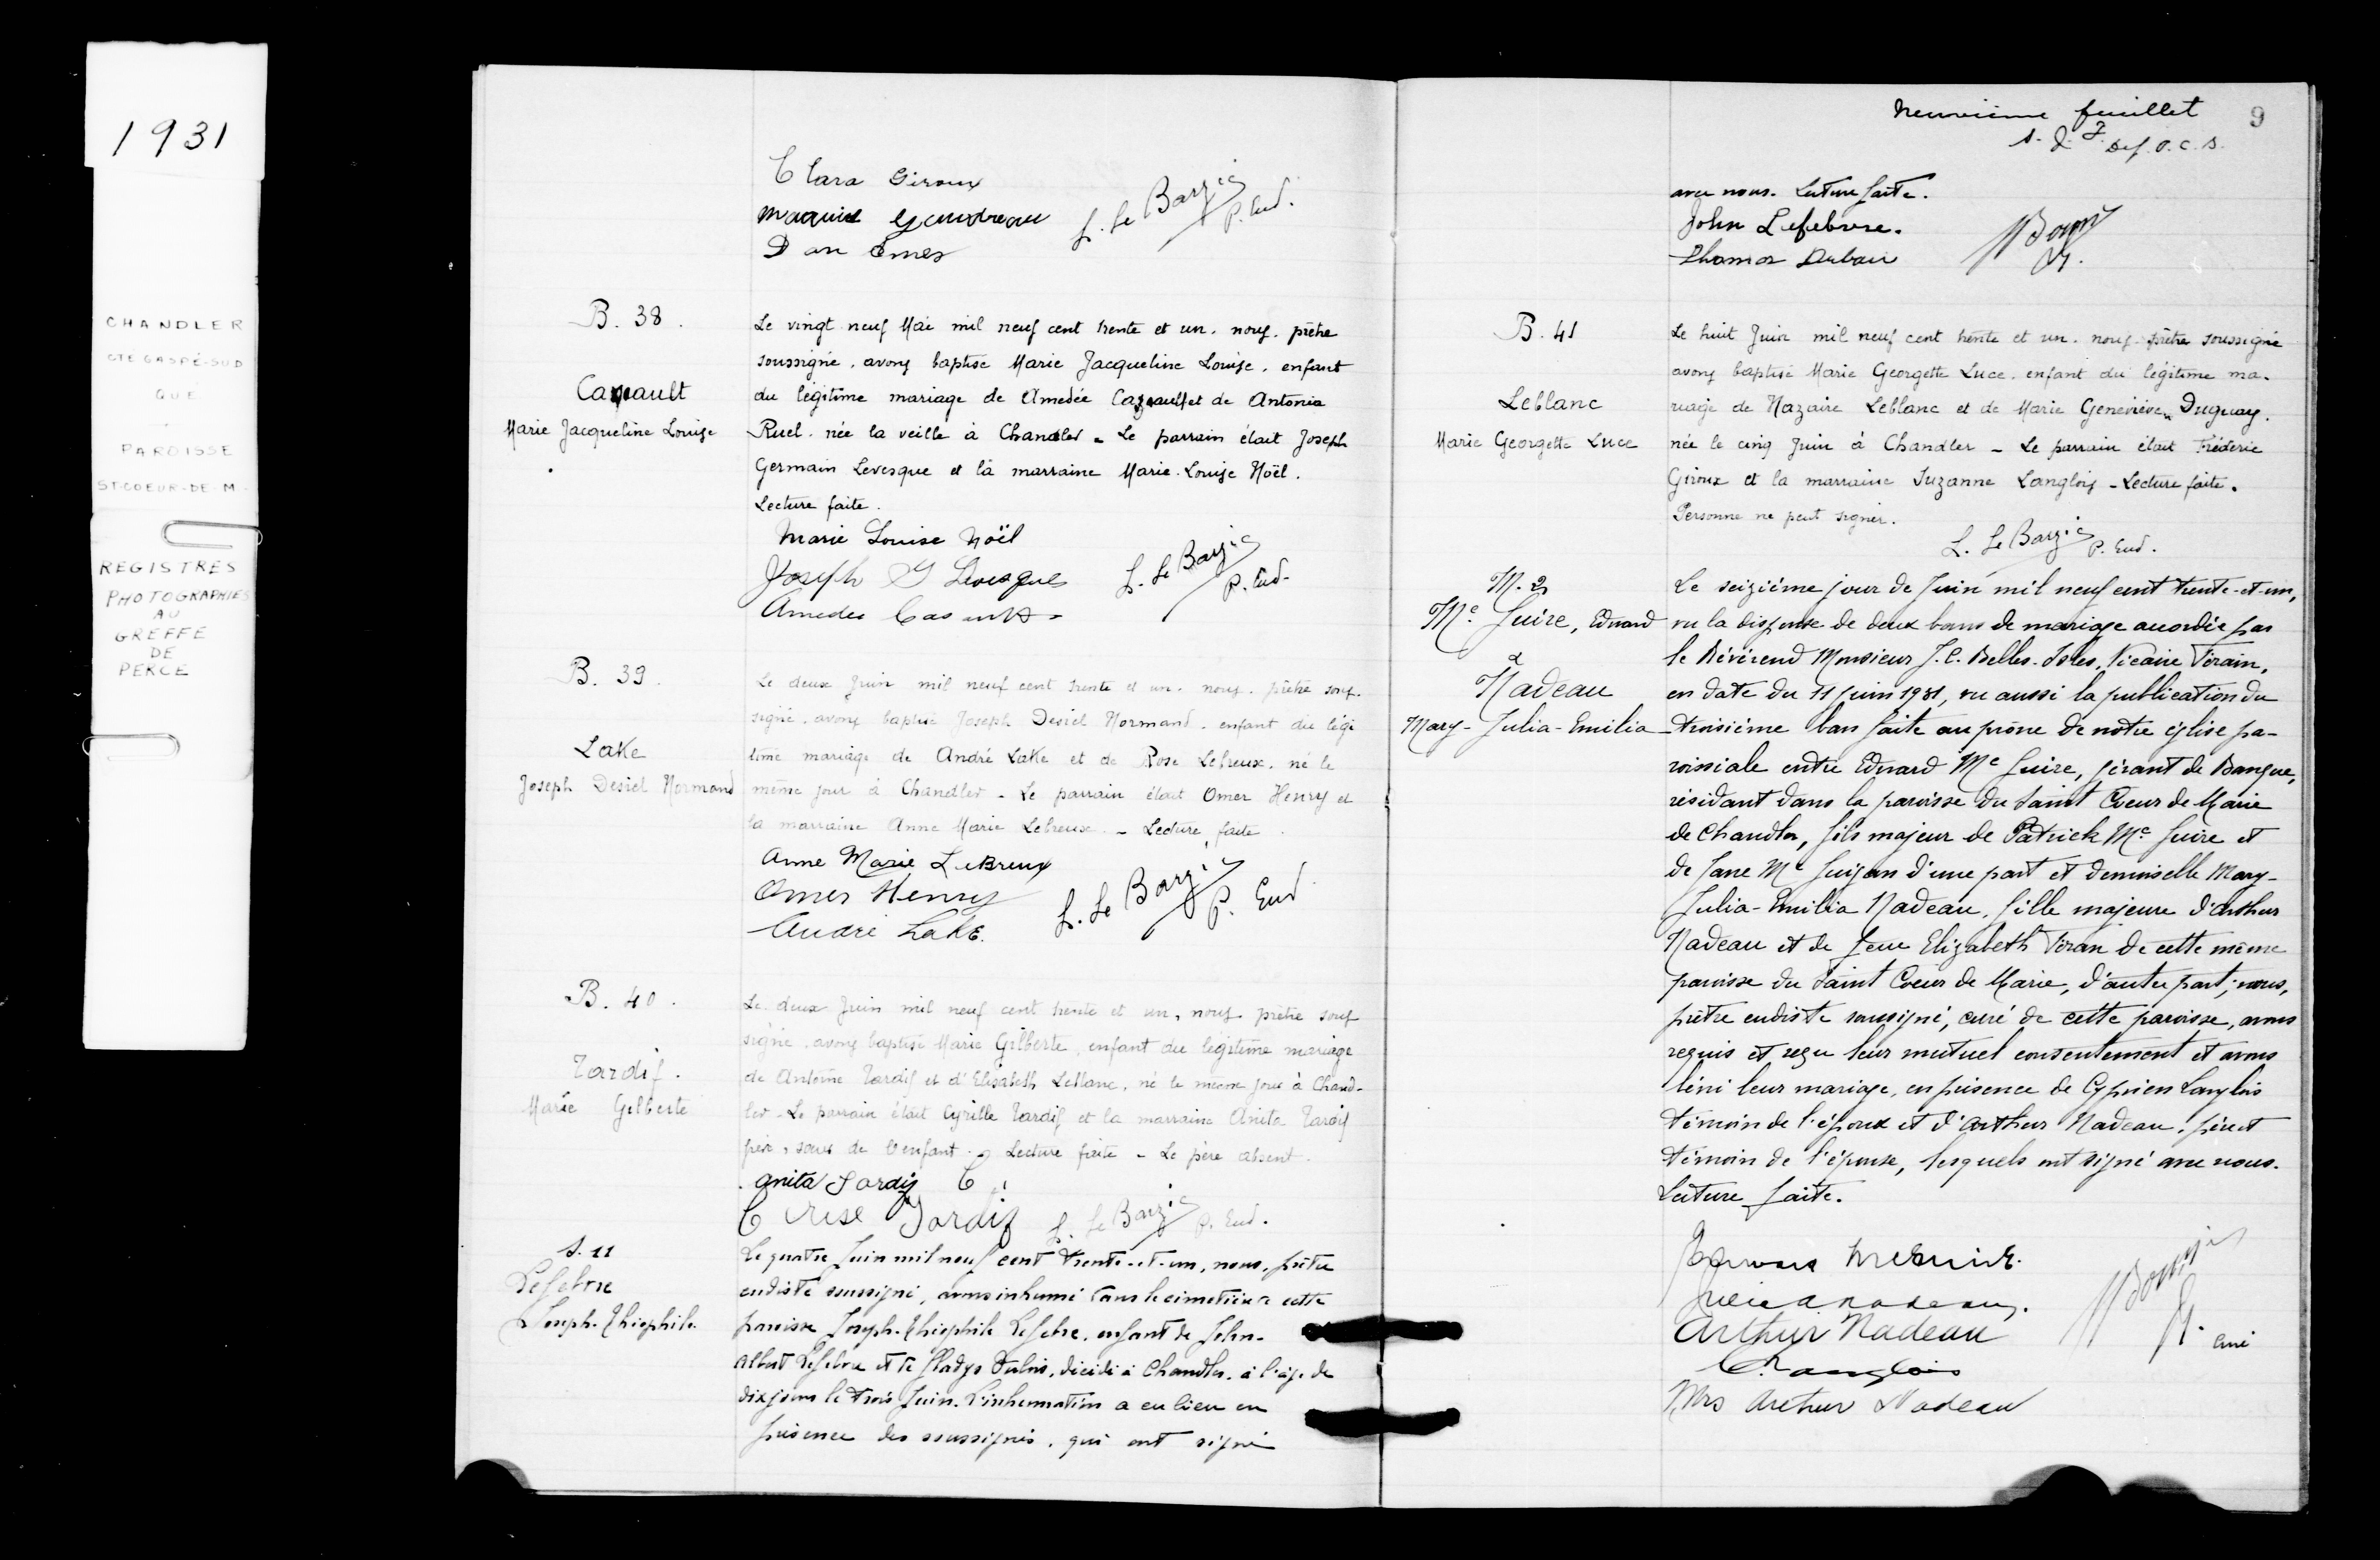 1931
CHANDLER
CTÉ GASPÉ-SUD
QUE
PAROISSE
ST-COEUR-DE-M
REGISTRES
PHOTOGRAPHIES
AU
GREFFE
DE
PERCE
Clara Giroux
Gaudreau
L. Le Barzic P. Eud.
Dan
B. 38.
Cazeault
Marie Jacqueline Louise
Le vingt neuf Mai mil neuf cent trente et un. nous. prêtre
soussigné. avons baptisé Marie Jacqueline Louise. enfant
du légitime mariage de Amedée Cazeault et de Antonia
Ruel. née la veille à Chandler - Le parrain était Joseph
Germain Levesque et la marraine Marie-Louise Noël.
Lecture faite.
Marie Louise Noël
Joseph G Levesque
L. Le Barzic P. Eud.
Amedee Casault
B. 39.
Lake
Joseph Desiel Normand
Le deux Juin mil neuf cent trente et un. nous. prêtre sous-
signé. avons baptisé Joseph Desiel Normand. enfant du légi
time mariage de André Lake et de Rose Lebreux. né le
même jour à Chandler - Le parrain était Omer Henry et
la marraine Anne Marie Lebreux - Lecture faite.
Anne Marie LeBreux
Omer Henry
L. Le Barzic P. Eud
André Lake.
B. 40.
Tardif.
Marie Gilberte
Le deux Juin mil neuf cent trente et un, nous prêtre sous
signé. avons baptisé Marie Gilberte, enfant du légitime mariage
de Antoine Tardif et d'Elisabeth Leblanc, né le même jour à Chand-
ler - Le parrain était Cyrille Tardif et la marraine Anita Tardif
frère, soeur de l'enfant. Lecture faite - Le père absent.
Anita Tardif C
Tardif L. Le Barzic P. Eud.
S. 11
Lefebvre
Joseph-Théophile
Le quatre Juin mil neuf cent trente-et-un, nous, prêtre
eudiste soussigné, avons inhumé dans le cimetière de cette
paroisse Joseph-Théophile Lefebvre, enfant de John-
Albert Lefebvre et de Gladys Dubois, décédé à Chandler, à l'âge de
dix jours le trois Juin. L'inhumation a eu lieu en
présence des soussignés, qui ont signé
Neuvième feuillet 9
avec nous. Lecture faite.
John Lefebvre.
Thomas
B. 41
Leblanc
Marie Georgette Luce
Le huit Juin mil neuf cent trente et un. nous prêtre soussigné
avons baptisé Marie Georgette Luce. enfant du légitime ma-
riage de Nazaire Leblanc et de Marie Geneviève Duguay.
née le cinq Juin à Chandler - Le parrain était Fréderic
Giroux et la marraine Suzanne Langlois - Lecture faite.
Personne ne peut signer.
L. Le Barzic P. Eud.
M. 2
Mc Guire, Edward
&
Nadeau
Mary-Julia-Emilia
Le seizième jour de Juin mil neuf cent trente-et-un,
vu la dispense de deux bans de mariage accordée par
le Révérend Monsieur J.C. Belles-Isles, Vicaire Forain,
en date du 11 juin 1931, vu aussi la publication du
troisième ban faite au prône de notre église pa-
roissiale entre Edward Mc Guire, gérant de Banque,
résidant dans la paroisse du Saint Coeur de Marie
de Chandler, fils majeur de Patrick Mc Guire et
de Jane Mc Guigan d'une part et demoiselle Mary-
Julia-Emilia Nadeau, fille majeure d'Arthur
Nadeau et de feue Elizabeth de cette même
paroisse du Saint Coeur de Marie, d'autre part; nous,
prêtre eudiste soussigné, curé de cette paroisse, avons
requis et reçu leur mutuel consentement et avons
béni leur mariage, en présence de Cyprien Langlois
témoin de l'époux et d'Arthur Nadeau, père et
témoin de l'épouse, lesquels ont signé avec nous.
Lecture faite.
Edward McGuire.
Julia Nadeau.
Arthur Nadeau
curé
C. Langlois
Mrs Arthur Nadeau